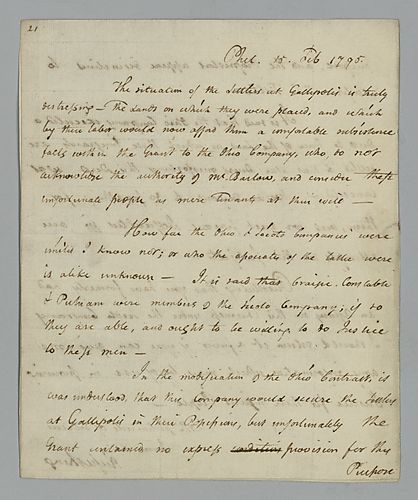 21
Phil. 15. Feb 1795.
The situation of the Settlers at Gallipolis is truly
distressing — The Lands on which they were placed, and which
by their labor would now afford them a comfortable subsistence
falls within the Grant to the Ohio Company, who do not
acknowledge the authority of Mr. Barlow, and consider these
unfortunate people as mere Tenants at their will —
How far the Ohio & Scioto Companies were
united I know not; or who the associates of the latter were
is alike unknown — It is said that Craigie, Constable
& Putnam were members of the Scioto Company; if so
they are able, and ought to be willing to do Justice
to these men —
In the modification of the Ohio Contract, it
was understood, that this Company would secure the Settlers
at Gallipolis in their Possessions, but unfortunately the
Grant contained no express condition provision for this
Purpose